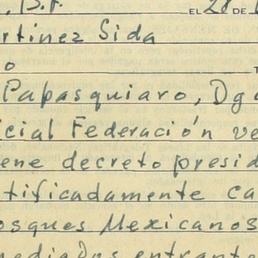 D.F. EL 28 DE
rtínez Sida
o
Papasquiaro, Dg
icial Federación ve
ene decreto presid
tificadamente ca
osques Mexicanos
mediados entrante